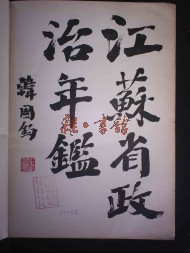 江蘇省政
治年鑑
韓國鈞